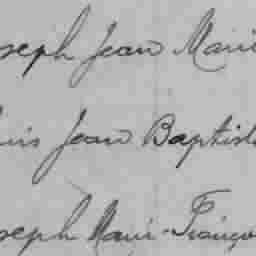 seph Jean Marie
uis Jean Baptiste
seph Marie-Franço